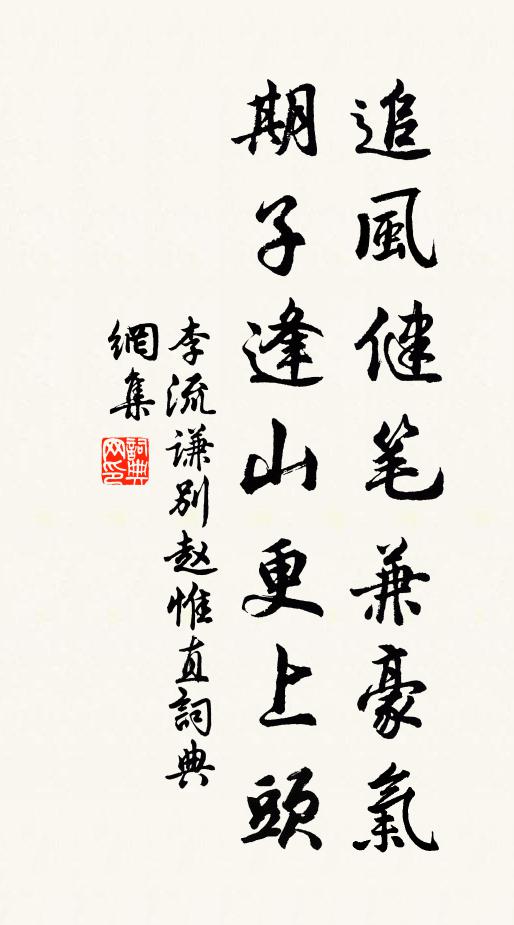 追風健笔兼豪氣
期子逢山更上頭
李流谦别赵惟直詞典
網集
詞典網印